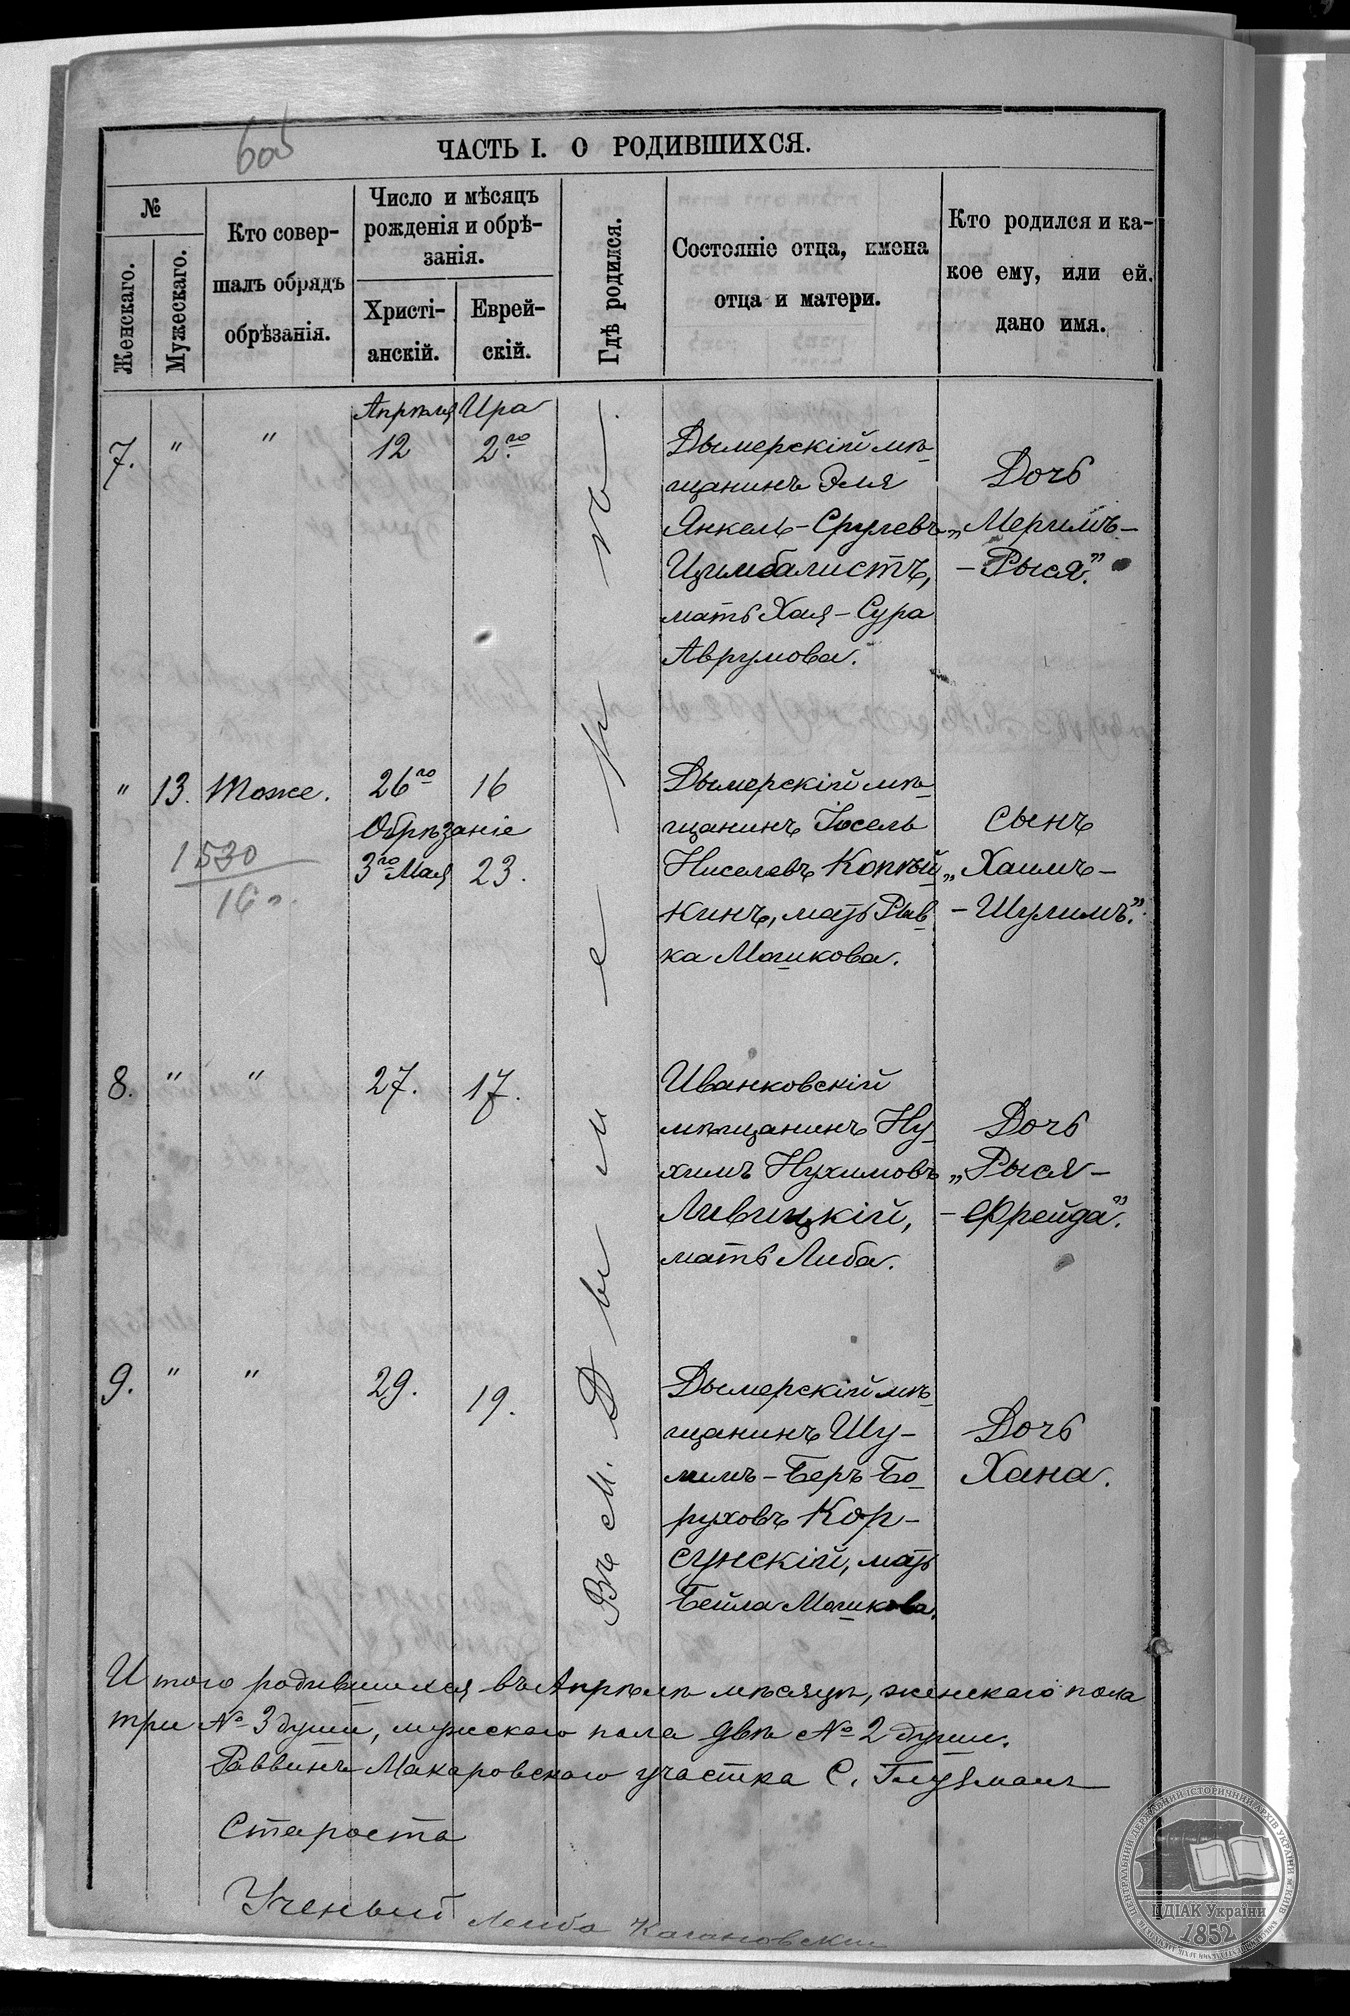 605
ЧАСТЬ I. О РОДИВШИХСЯ.
№
Женскаго.
Мужескаго.
Кто совер-
шалъ обрядъ
обрѣзанія.
Число и мѣсяцъ
рожденія и обрѣ-
занія.
Христі-
анскій.
Еврей-
скій.
Гдѣ родился.
Состояніе отца, имена
отца и матери.
Кто родился и ка-
кое ему, или ей.
дано имя.
Въ м. Дымерѣ.
Апрѣля Ира
7. " " 12 2го
Дымерскій мѣ-
щанинъ Эля
Янкель-Срулевъ
Цимбалистъ,
мать Хая-Сура
Аврумова.
Дочь
„Меримъ-
-Рыся."
" 13. Тоже. 26го 16
Обрѣзаніе
3го Мая 23.
1530
Дымерскій мѣ-
щанинъ Іосель
Ниселевъ Копѣй
кинъ, мать Рыв-
ка Мошкова.
сынъ
„Хаимъ-
-Шулимъ."
8. " " 27. 17.
Иванковскій
мѣщанинъ Ну-
химъ Нухимовъ
Ливицкій,
мать Либа.
Дочь
„Рыся-
-Фрейда".
9. " " 29. 19.
Дымерскій мѣ-
щанинъ Шу-
лимъ-Беръ Бо-
руховъ Кор-
сунскій, мать
Бейла Мошкова.
Дочь
Хана.
Итого родившихся въ Апрѣлѣ мѣсяцѣ, женскаго пола
три № 3 души, мужскаго пола двѣ № 2 души.
Раввинъ Макаровскаго участка С. Глузманъ
Староста
Ученый Лейба Кагановскій
ЦЕНТРАЛЬНИЙ ДЕРЖАВНИЙ ІСТОРИЧНИЙ АРХІВ УКРАЇНИ М.КИЇВ
ЦДІАК України
1852